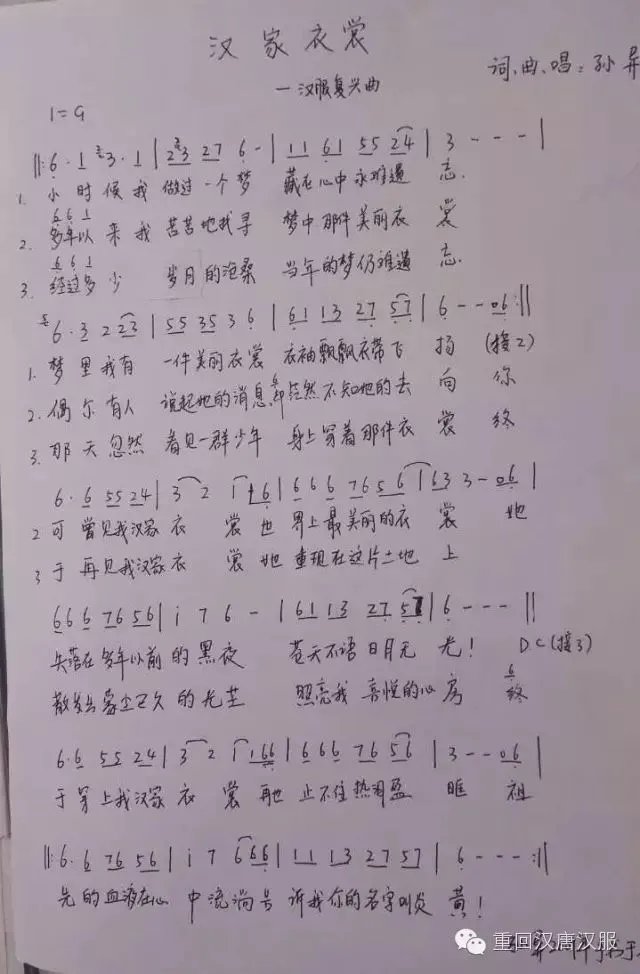 汉家衣裳
—汉服复兴曲
词、曲、唱：孙异
1=G
‖: 6·1 3·1 | 23 27 6 - | 11 61 55 24 | 3 - - - |
1. 小时候我做过一个梦 藏在心中永难遗忘.
6 6 1
2. 多年以来我苦苦地找寻 梦中那件美丽衣裳
6 6 1
3. 经过多少岁月的沧桑 当年的梦仍难遗忘.
6·3 2 23 | 55 35 3 6 | 61 13 27 57 | 6 - - 06 :‖
1. 梦里我有一件美丽衣裳 衣袖飘飘衣带飞扬 (接2)
2. 偶尔有人说起她的消息 却茫然不知她的去向 你
3. 那天忽然看见一群少年 身上穿着那件衣裳 终
6·6 55 24 | 3 2 1 16 | 6 6 6 76 56 | 63 3 - 06 |
2 可曾见我汉家衣裳 世界上最美丽的衣裳 她
3 于再见我汉家衣裳 她重现在这片土地上
66 6 76 56 | i 7 6 - | 61 13 27 57 | 6 - - - ‖
失落在多年以前的黑夜 苍天不语日月无光! DC(接3)
散发出蒙尘已久的光芒 照亮我喜悦的心房 6 终
6·6 55 24 | 3 2 1 166 | 6 66 76 56 | 3 - - 06 |
于穿上我汉家衣裳 再也止不住热泪盈眶 祖
‖: 6·6 76 56 | i 7 6 66 | 11 13 27 57 | 6 - - - :‖
先的血液在心中流淌 告诉我你的名字叫炎黄!
重回汉唐汉服